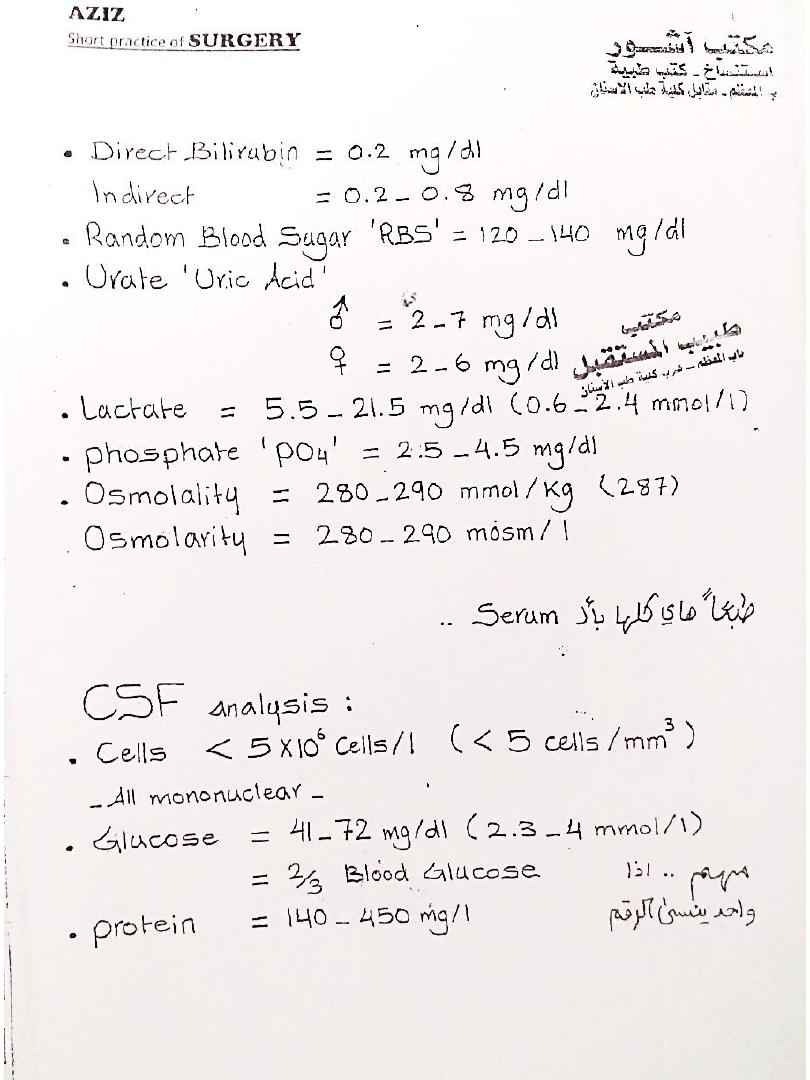 AZIZ
Short practice of SURGERY
مكتب آشور
استنساخ - كتب طبية
م المعظم - مقابل كلية طب الاسنان
• Direct Bilirubin = 0.2 mg/dl
Indirect = 0.2 - 0.8 mg/dl
• Random Blood Sugar 'RBS' = 120 - 140 mg/dl
• Urate 'Uric Acid'
♂ = 2 - 7 mg/dl
♀ = 2 - 6 mg/dl
مكتب
طبيب المستقبل
باب المعظم - قرب كلية طب الأسنان
• Lactate = 5.5 - 21.5 mg/dl (0.6 - 2.4 mmol/l)
• phosphate 'PO4' = 2.5 - 4.5 mg/dl
• Osmolality = 280 - 290 mmol/Kg (287)
Osmolarity = 280 - 290 mosm/l
طبعاً هاي كلها بالـ Serum ..
CSF analysis :
• Cells < 5 x 10⁶ Cells/l (< 5 cells/mm³)
- All mononuclear -
• Glucose = 41 - 72 mg/dl (2.3 - 4 mmol/l)
= 2/3 Blood Glucose مهم .. اذا
واحد ينسى الرقم
• protein = 140 - 450 mg/l